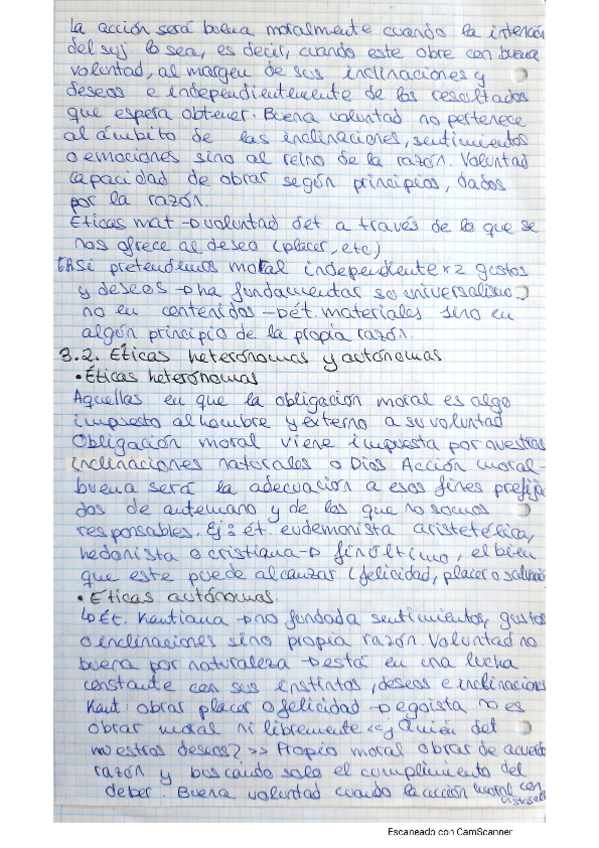 La acción será buena moralmente cuando la intención
del suj lo sea, es decir, cuando este obre con buena
voluntad, al margen de sus inclinaciones y
deseos e independientemente de los resultados
que espera obtener. Buena voluntad no pertenece
al ámbito de las inclinaciones, sentimientos
o emociones sino al reino de la razón. Voluntad
capacidad de obrar según principios, dados
por la razón.
Éticas mat → voluntad det a través de lo que se
nos ofrece al deseo (placer, etc)
Así pretendemos moral independiente gustos
y deseos → ha fundamentar su universalismo
no en contenidos → ét. materiales sino en
algún principio de la propia razón.
3.2. Éticas heterónomas y autónomas
• Éticas heterónomas
Aquellas en que la obligación moral es algo
impuesto al hombre y externo a su voluntad
Obligación moral viene impuesta por nuestras
inclinaciones naturales o Dios Acción moral-
buena será la adecuación a esos fines prefija
dos de antemano y de los que no somos
responsables. Ej: ét. eudemonista aristetélica,
hedonista o cristiana → fin último, el bien
que este puede alcanzar (felicidad, placer o salvación
• Éticas autónomas
↳ Ét. Kantiana → no fundada sentimientos, gustos
o inclinaciones sino propia razón. Voluntad no
buena por naturaleza → está en una lucha
constante con sus instintos, deseos e inclinaciones
Kant: obrar placer o felicidad → egoista no es
obrar moral ni libremente <<¿Quién del
nuestros deseos? >> Propio moral obrar de acuerdo
razón y buscando solo el cumplimiento del
deber. Buena voluntad cuando la acción moral con
Escaneado con CamScanner